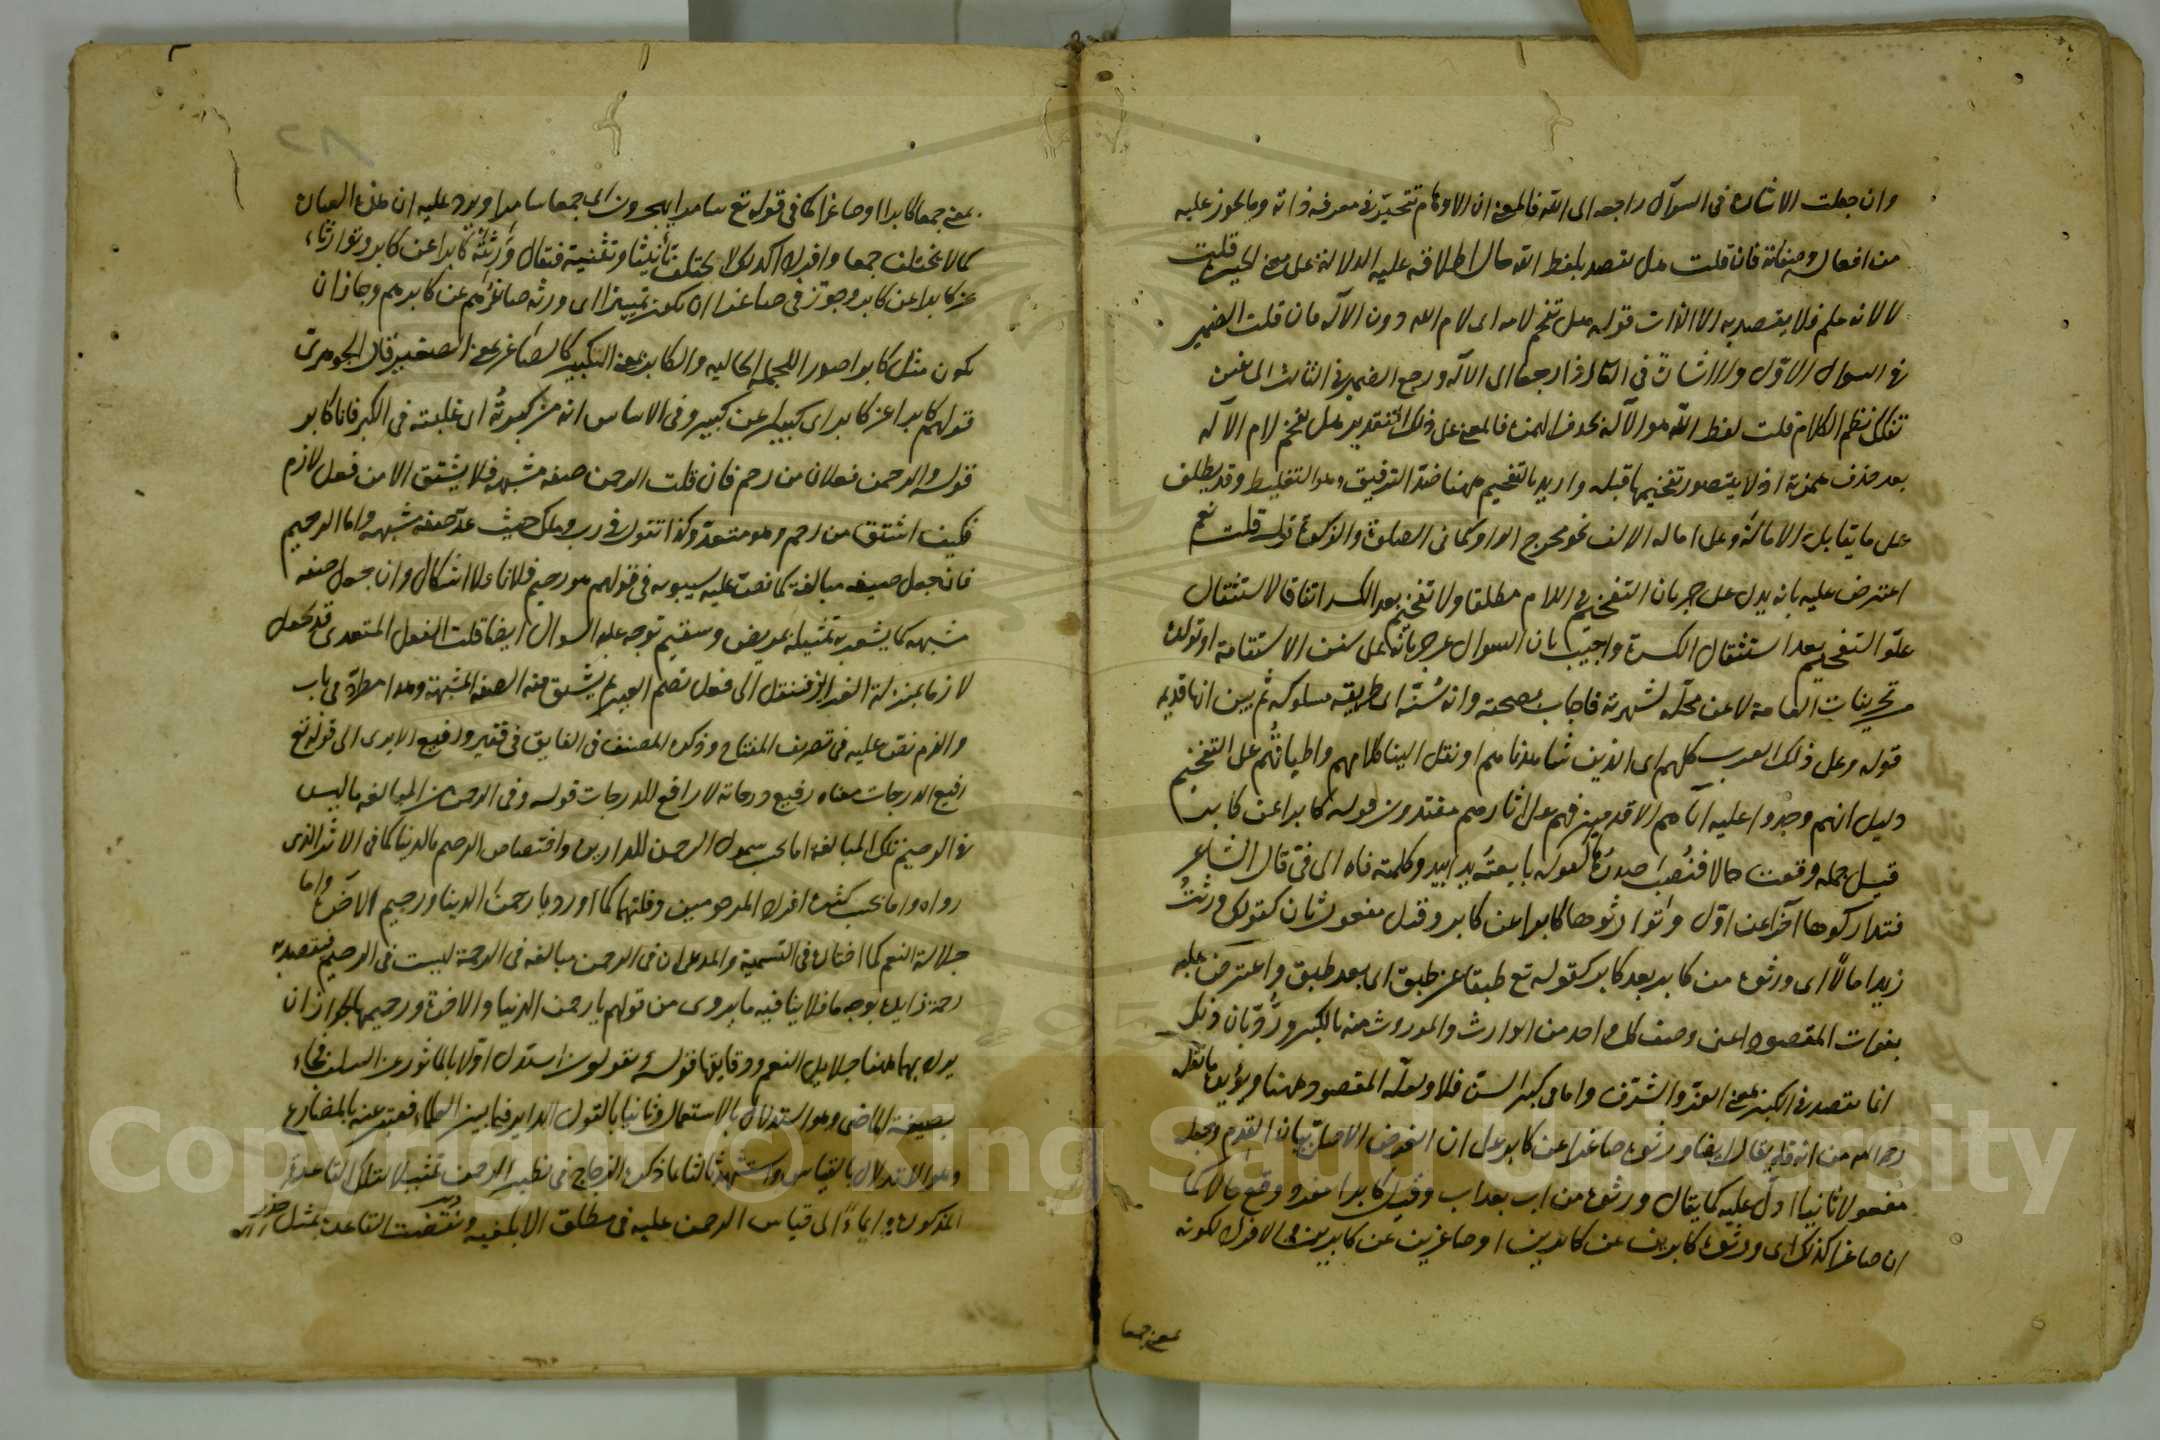 وان جعلت الاشارة فى السوآل راجعه الى الله فالمعنى ان الاوهام تتحيّر فى معرفه ذاته وما يجوز عليه
من افعاله وصفاته فان قلت هل يقصد بلفظ الله حال اطلاقه عليه الدلالة على معنى الحيرة قلت
لا لانه علم فلا يقصد به الا الذات قوله هل تفخم لامه اى لام الله دون الآله فان قلت الضمير
فى السوال الاوّل والاشارة فى الثانى اذا رجعا الى الآله ورجع الضمير فى الثالث الى
تفكك نظم الكلام قلت لفظ الله هو الآله بحذف الهمزة فالمعنى على ذلك التقدير هل تفخم لام الآله
بعد حذف همزته اذ لا يتصور تفخيمها قبله واريد بالتفخيم ههنا ضدّ الترقيق وهو التغليظ وقد يطلق
على ما يقابل الامالة وعلى امالة الالف نحو مخرج الواو كما فى الصلوة والزكوة قوله قلت نعم
اعترض عليه بانه يدل على جريان التفخيم فى اللام مطلقا ولا تفخيم بعد الكسر اتفاقا لاستثقال
علوّ التفخيم بعد استثقال الكسرة واجيب بان السوال عن جريانه على سنن الاستقامة او تولده
من تحريفات العامة لا عن محلّه لشهرته فاجاب بصحته وانه سُنّة اى طريقه مسلوكه ثم بين انها قديمه
قوله وعلى ذلك العرب كلهم اى الذين شاهدناهم او نقل الينا كلامهم واطباقهم على التفخيم
دليل انهم وجدوا عليه آباءهم الاقدمين فهم على اثارهم مقتدون قوله كابرا عن كابر
قيل جمله وقعت حالا فنُصب صدرُها كقوله بايعتُه يدا بيد وكلمته فاه الى فىّ قال الشاعر
فتداركوها آخرا عن اوّل وتوارثوها كابرا عن كابر وقيل مفعول ثان كقولك ورثتُ
زيدا مالاً اى ورثوه من كابر بعد كابر كقوله تع طبقا عن طبق اى بعد طبق واعترض عليه
بفوات المقصود اعنى وصف كل واحد من الوارث والموروث منه بالكبر ورُدّ بان ذلك
انما يقصد فى الكبر بمعنى العزّ والشرف واما فى كبر السنّ فلا ولعله المقصود ههنا ويؤيده ما نقل
رحمه الله من انه قد يقال ايضا ورثوه صاغرا عن كابر على ان الغرض الاصلىّ بيان القدم وجعله
مفعولا ثانيا ادلّ عليه كما يقال ورثوه من اب بعد اب وقيل كابرا مفرد وقع حالا كما
ان صاغرا كذلك اى ورثوه كابرين عن كابرين او صاغرين عن كابرين والافراد لكونه
بمعنى جمعا
بمعنى جمعا كابرا او صاغرا كما فى قوله تع سامرا يهجرون اى جمعا سامرا ويرد عليه ان هذه العبارة
كما لا تختلف جمعا وافرادا كذلك لا تختلف تأنيثا وتثنية فيقال ورثَتْه كابرا عن كابر وتوارثاه
كابرا عن كابر وجوّز فى صاغرا ان يكون تمييزا اى ورثه صاغرُهم عن كابرهم وجاز ان
يكون مثل كابرا صدرا للجملة الحاليه والكابر بمعنى الكبير كالصاغر بمعنى الصغير قال الجوهرىّ
قولهم كابرا عن كابر اى كبيرا عن كبير وفى الاساس انه من كبرتُه اى غلبته فى الكبر فانا كابر
قوله والرحمن فعلان من رحم فان قلت الرحمن صفه مشبهه فلا يشتق الا من فعل لازم
فكيف اشتق من رحم وهو متعدّ وكذا تقول فى رب وملك حيث عدّ صفه مشبهه واما الرحيم
فان جعل صيغه مبالغة كما نصّ عليه سيبويه فى قولهم هو رحيم فلانا فلا اشكال وان جعل صفه
مشبهه كما يشعر به تمثيله بمريض وسقيم توجه عليه السوال ايضا قلت الفعل المتعدى قد يجعل
لازما بمنزلة الغرايز فينقل الى فعل بضم العين ثم يشتق منه الصفه المشبهة وهذا مطرد فى باب
المدح والذم نصّ عليه فى تصريف المفتاح وذكره المصنف فى الفايق فى فقير ورفيع الا يرى الى قوله تع
رفيع الدرجات معناه رفيع درجاته لا رافع للدرجات قوله وفى الرحمن من المبالغه ما ليس
فى الرحيم تلك المبالغه اما بحسب شمول الرحمن للدارين واختصاص الرحيم بالدنيا كما فى الاثر الذى
رواه واما بحسب كثرة افراد المرحومين وقلتهما كما ورد يا رحمن الدنيا ورحيم الآخرة واما
جلالة النعم كما اختاره فى التسمية والمدعى ان فى الرحمن مبالغه فى الرحمة ليست فى الرحيم فيقصد به
رحمة زايدة بوجه ما فلا ينافيه ما يروى من قولهم يا رحمن الدنيا والاخرة ورحيمهما لجواز ان
يراد بهما ههنا جلايل النعم ودقايقها قوله ويقولون استدل اوّلا بالماثور عن السلف فجاء
بصيغة الماضى وهو استدلال بالاستعمال وثانيا بالقول الداير فيما بين العلماء فعبّر عنه بالمضارع
وهو الاستدلال بالقياس واستشهد ثالثا بما ذكره الزجاج فى نظير الرحمن تمثيلا لتلك القاعدة
المذكورة وايماءً الى قياس الرحمن عليه فى مطلق الابلغيه وقد نقضت القاعدة بمثل حذر